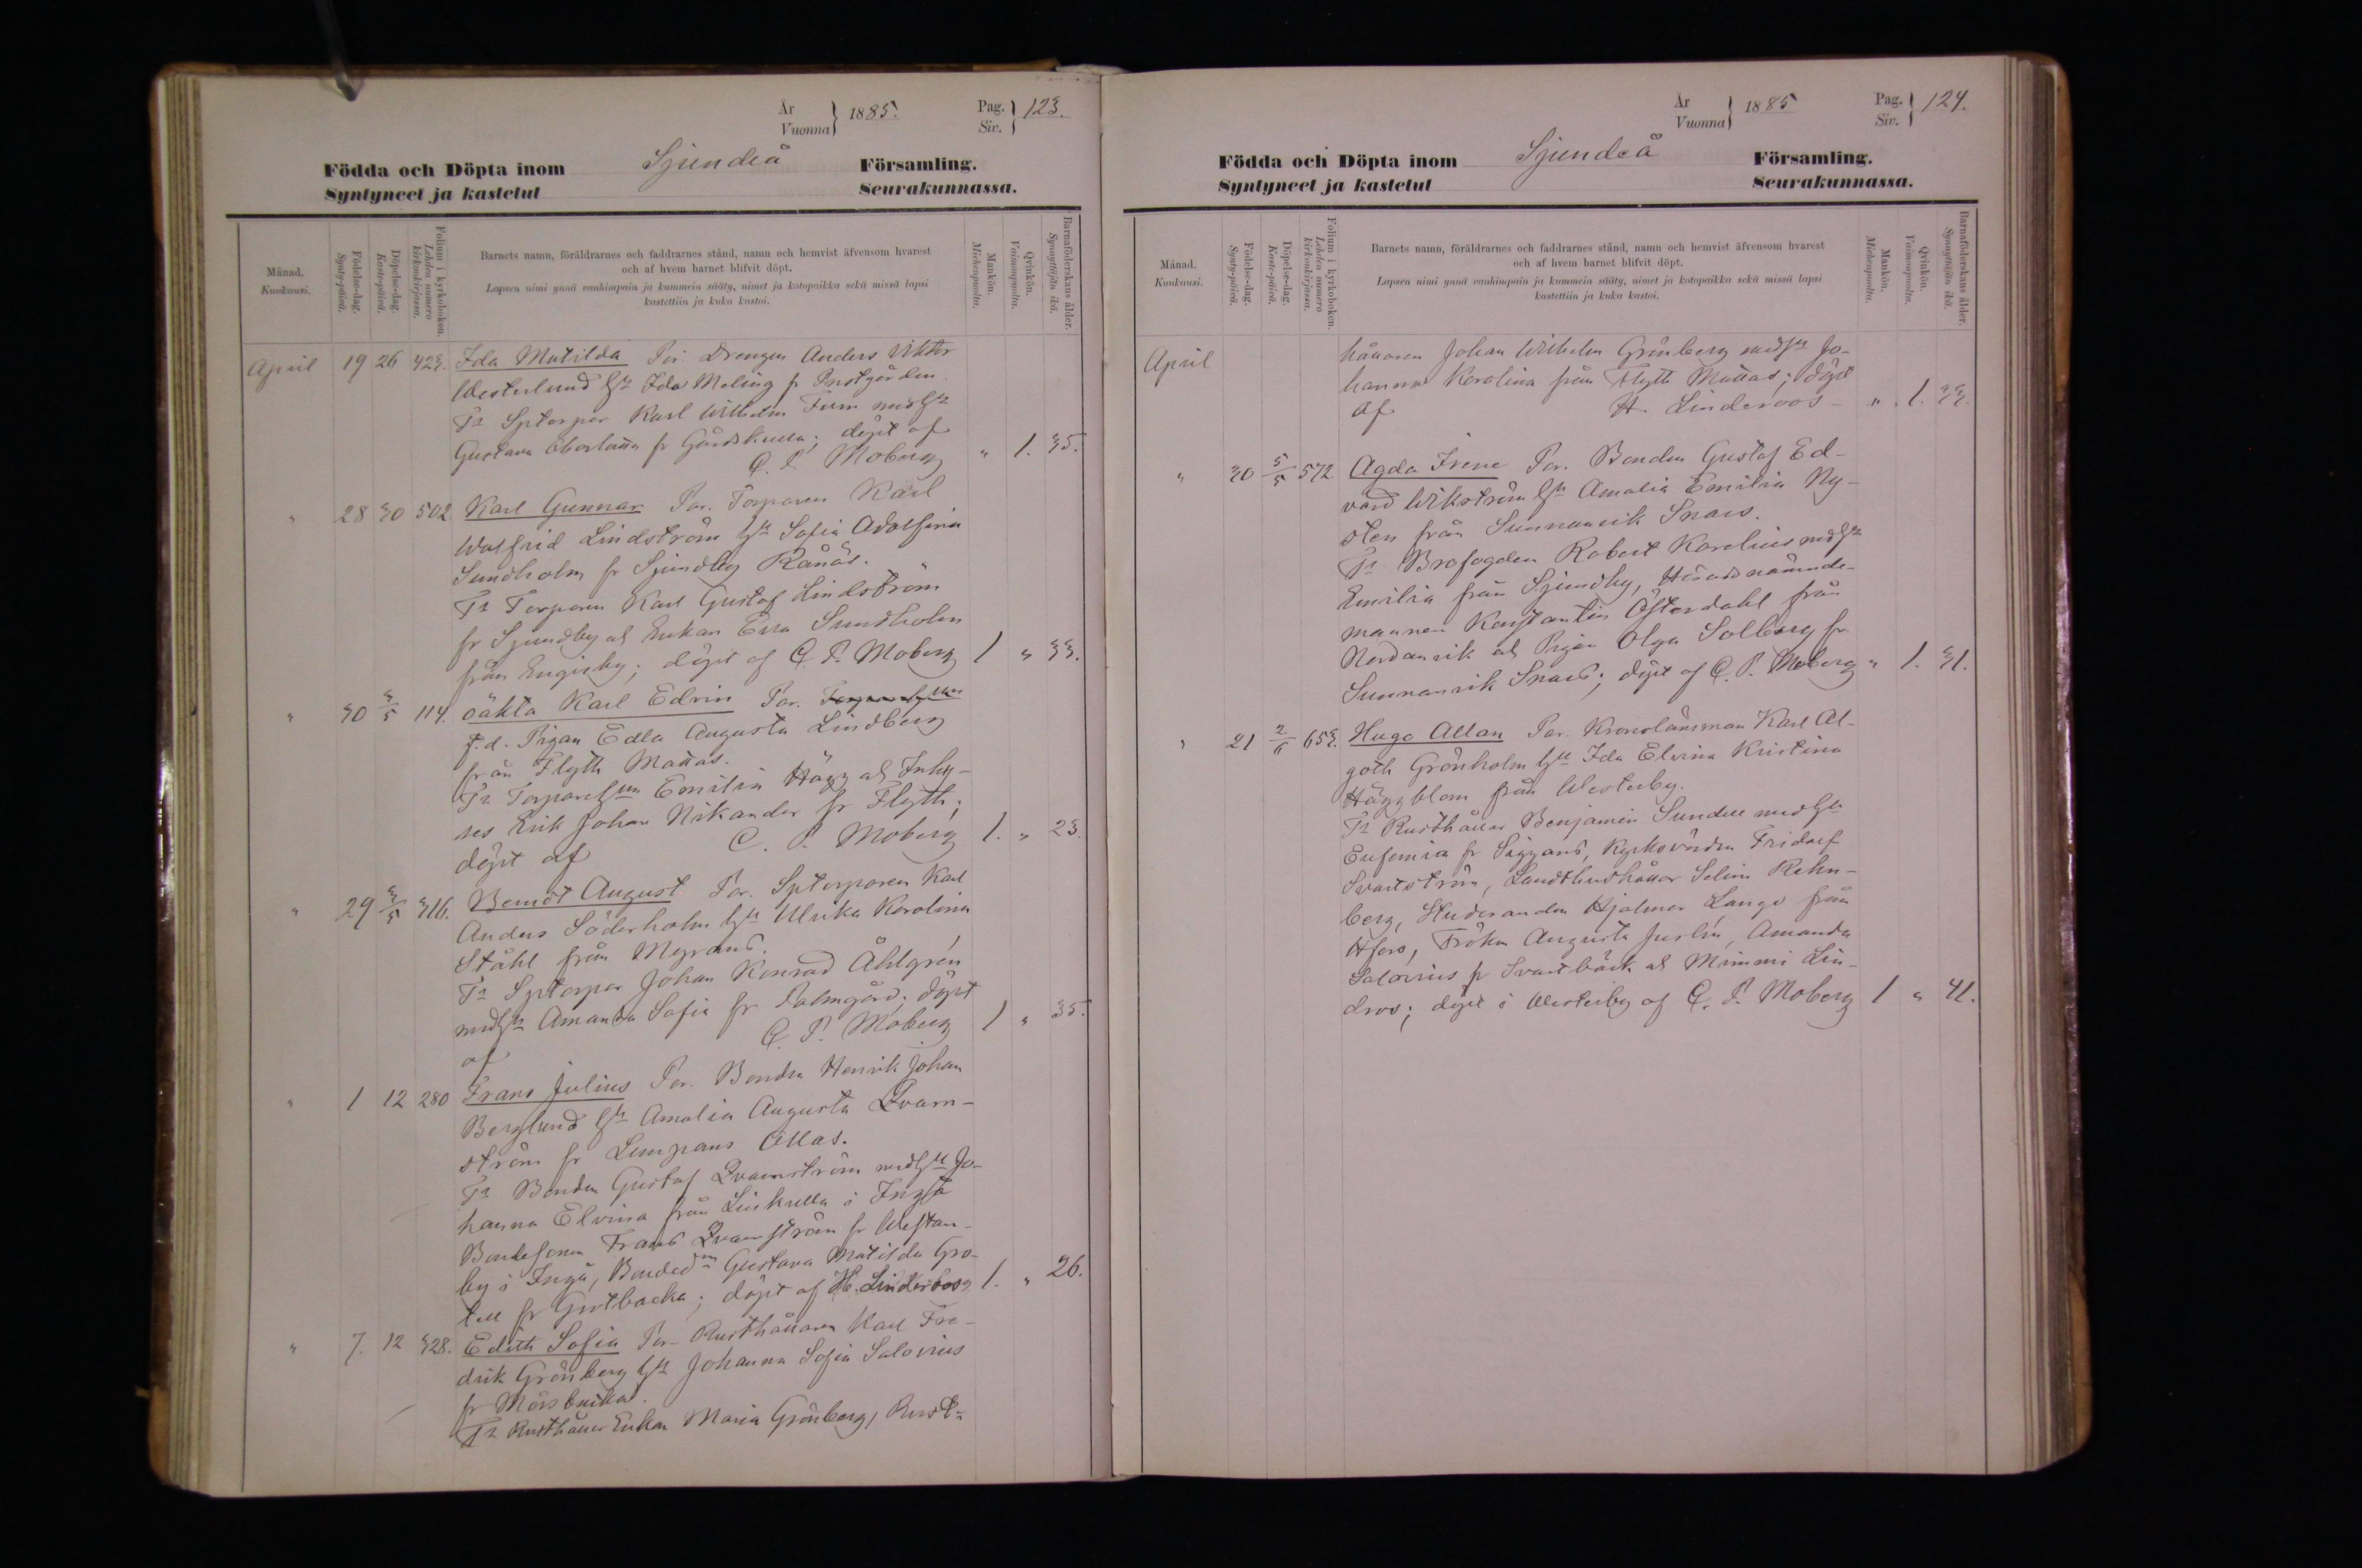 År
Vuonna
1885.
Pag.
Siv.
123.
Födda och Döpta inom Sjundeå Församling.
Syntyneet ja kastetut Seurakunnassa.
Månad.
Kuukausi.
Födelse-dag.
Synty-päivä.
Döpelse-dag.
Kaste-päivä.
Folium i kyrkoboken.
Lehden numero kirkonkirjassa.
Barnets namn, föräldrarnes och faddrarnes stånd, namn och hemvist äfvensom hvarest
och af hvem barnet blifvit döpt.
Lapsen nimi ynnä vanhimpain ja kummein sääty, nimet ja kotopaikka sekä missä lapsi
kastettiin ja kuka kastoi.
Mankön.
Miehenpuolta.
Qvinkön.
Vaimonpuolta.
Barnaföderskans ålder.
Synnyttäjän ikä.
April 19 26 423. Ida Matilda Par. Drengen Anders Viktor
Westerlund Hu Ida Meling fr Prestgården.
Fr Sptorpar Karl Wilhelm Furn med Hu
Gustava fr Gårdskulla; döpt af
C. P. Moberg " 1. 35.
" 28 30 502. Karl Gunnar Par. Torparen Karl
Walfrid Lindström Hu Sofia Adolfina
Sundholm fr Sjundby Rånäs.
Fr Torparen Karl Gustaf Lindström
fr Sjundby och Enkan Eva Sundholm
från Engisby; döpt af C. P. Moberg 1 " 33.
" 30 3/5 114. oäkta Karl Edvin Par.
f.d. Pigan Edla Augusta Lindberg
från Flyth Mattas.
Fr Torpareh Emilia Hägg och Inhy-
ses Erik Johan Nikander fr Flyth;
döpt af C. P. Moberg 1. " 23.
" 29 3/5 316. Berndt August Par. Sptorparen Karl
Anders Söderholm Hu Ulrika Karolina
Ståhl från Myrans.
Fr Sptorpar Johan Konrad Åhlgrén
med Hu Amanda Sofia fr Palmgård; döpt
af C. P. Moberg 1 " 35.
" 1 12 280 Frans Julius Par. Bonden Henrik Johan
Berglund Hu Amalia Augusta Qvarn-
ström fr Lempans Ollas.
Fr Bonden Gustaf Qvarnström med Hu Jo-
hanna Elvina från Linkulla i Ingå
Bondesonen Frans Qvarnström fr Westan-
by i Ingå, Bonded Gustava Matilda Gro-
tell fr Grotbacka; döpt af H. Linderoos 1. " 26.
" 7. 12 328. Edith Sofia Par. Rusthållaren Karl Fre-
drik Grönberg Hu Johanna Sofia Salovius
fr Mörsbacka.
Fr Rusthållar Enkan Maria Grönberg, Rust-
År
Vuonna
1885
Pag.
Siv.
124.
Födda och Döpta inom Sjundeå Församling.
Syntyneet ja kastetut Seurakunnassa.
Månad.
Kuukausi.
Födelse-dag.
Synty-päivä.
Döpelse-dag.
Kaste-päivä.
Folium i kyrkoboken.
Lehden numero kirkonkirjassa.
Barnets namn, föräldrarnes och faddrarnes stånd, namn och hemvist äfvensom hvarest
och af hvem barnet blifvit döpt.
Lapsen nimi ynnä vanhimpain ja kummein sääty, nimet ja kotopaikka sekä missä lapsi
kastettiin ja kuka kastoi.
Mankön.
Miehenpuolta.
Qvinkön.
Vaimonpuolta.
Barnaföderskans ålder.
Synnyttäjän ikä.
April hållaren Johan Wilhelm Grönberg med Hu Jo-
hanna Karolina från Flyth Mattas; döpt
af H. Linderoos " 1. 33.
" 30 5/5 572 Agda Irene Par. Bonden Gustaf Ed-
vard Wikström Hu Amalia Emilia Ny-
sten från Sunnanvik Snars.
Fr Brofogden Robert Karelius med Hu
Emilia från Sjundby, Häradsnämnde-
mannen Konstantin Österdahl från
Nordanvik och Pigan Olga Solberg fr
Sunnanvik Snars; döpt af C. P. Moberg " 1. 31.
" 21 2/6 653. Hugo Allan Par. Kronolänsman Karl Al-
goth Grönholm Hu Ida Elvina Kristina
Häggblom från Westerby.
Fr Rusthållar Benjamin Sundell med Hu
Eufemia fr Siggans, Kyrkovärden Fridolf
Svartström, Landthushållar Selim Rehn-
berg, Studeranden Hjalmar Lange från
Hfors, Fröken Augusta Juslin, Amanda
Salovius fr Svartbäck och Mimmi Lin-
droos; döpt i Westerby af C. P. Moberg 1 " 41.